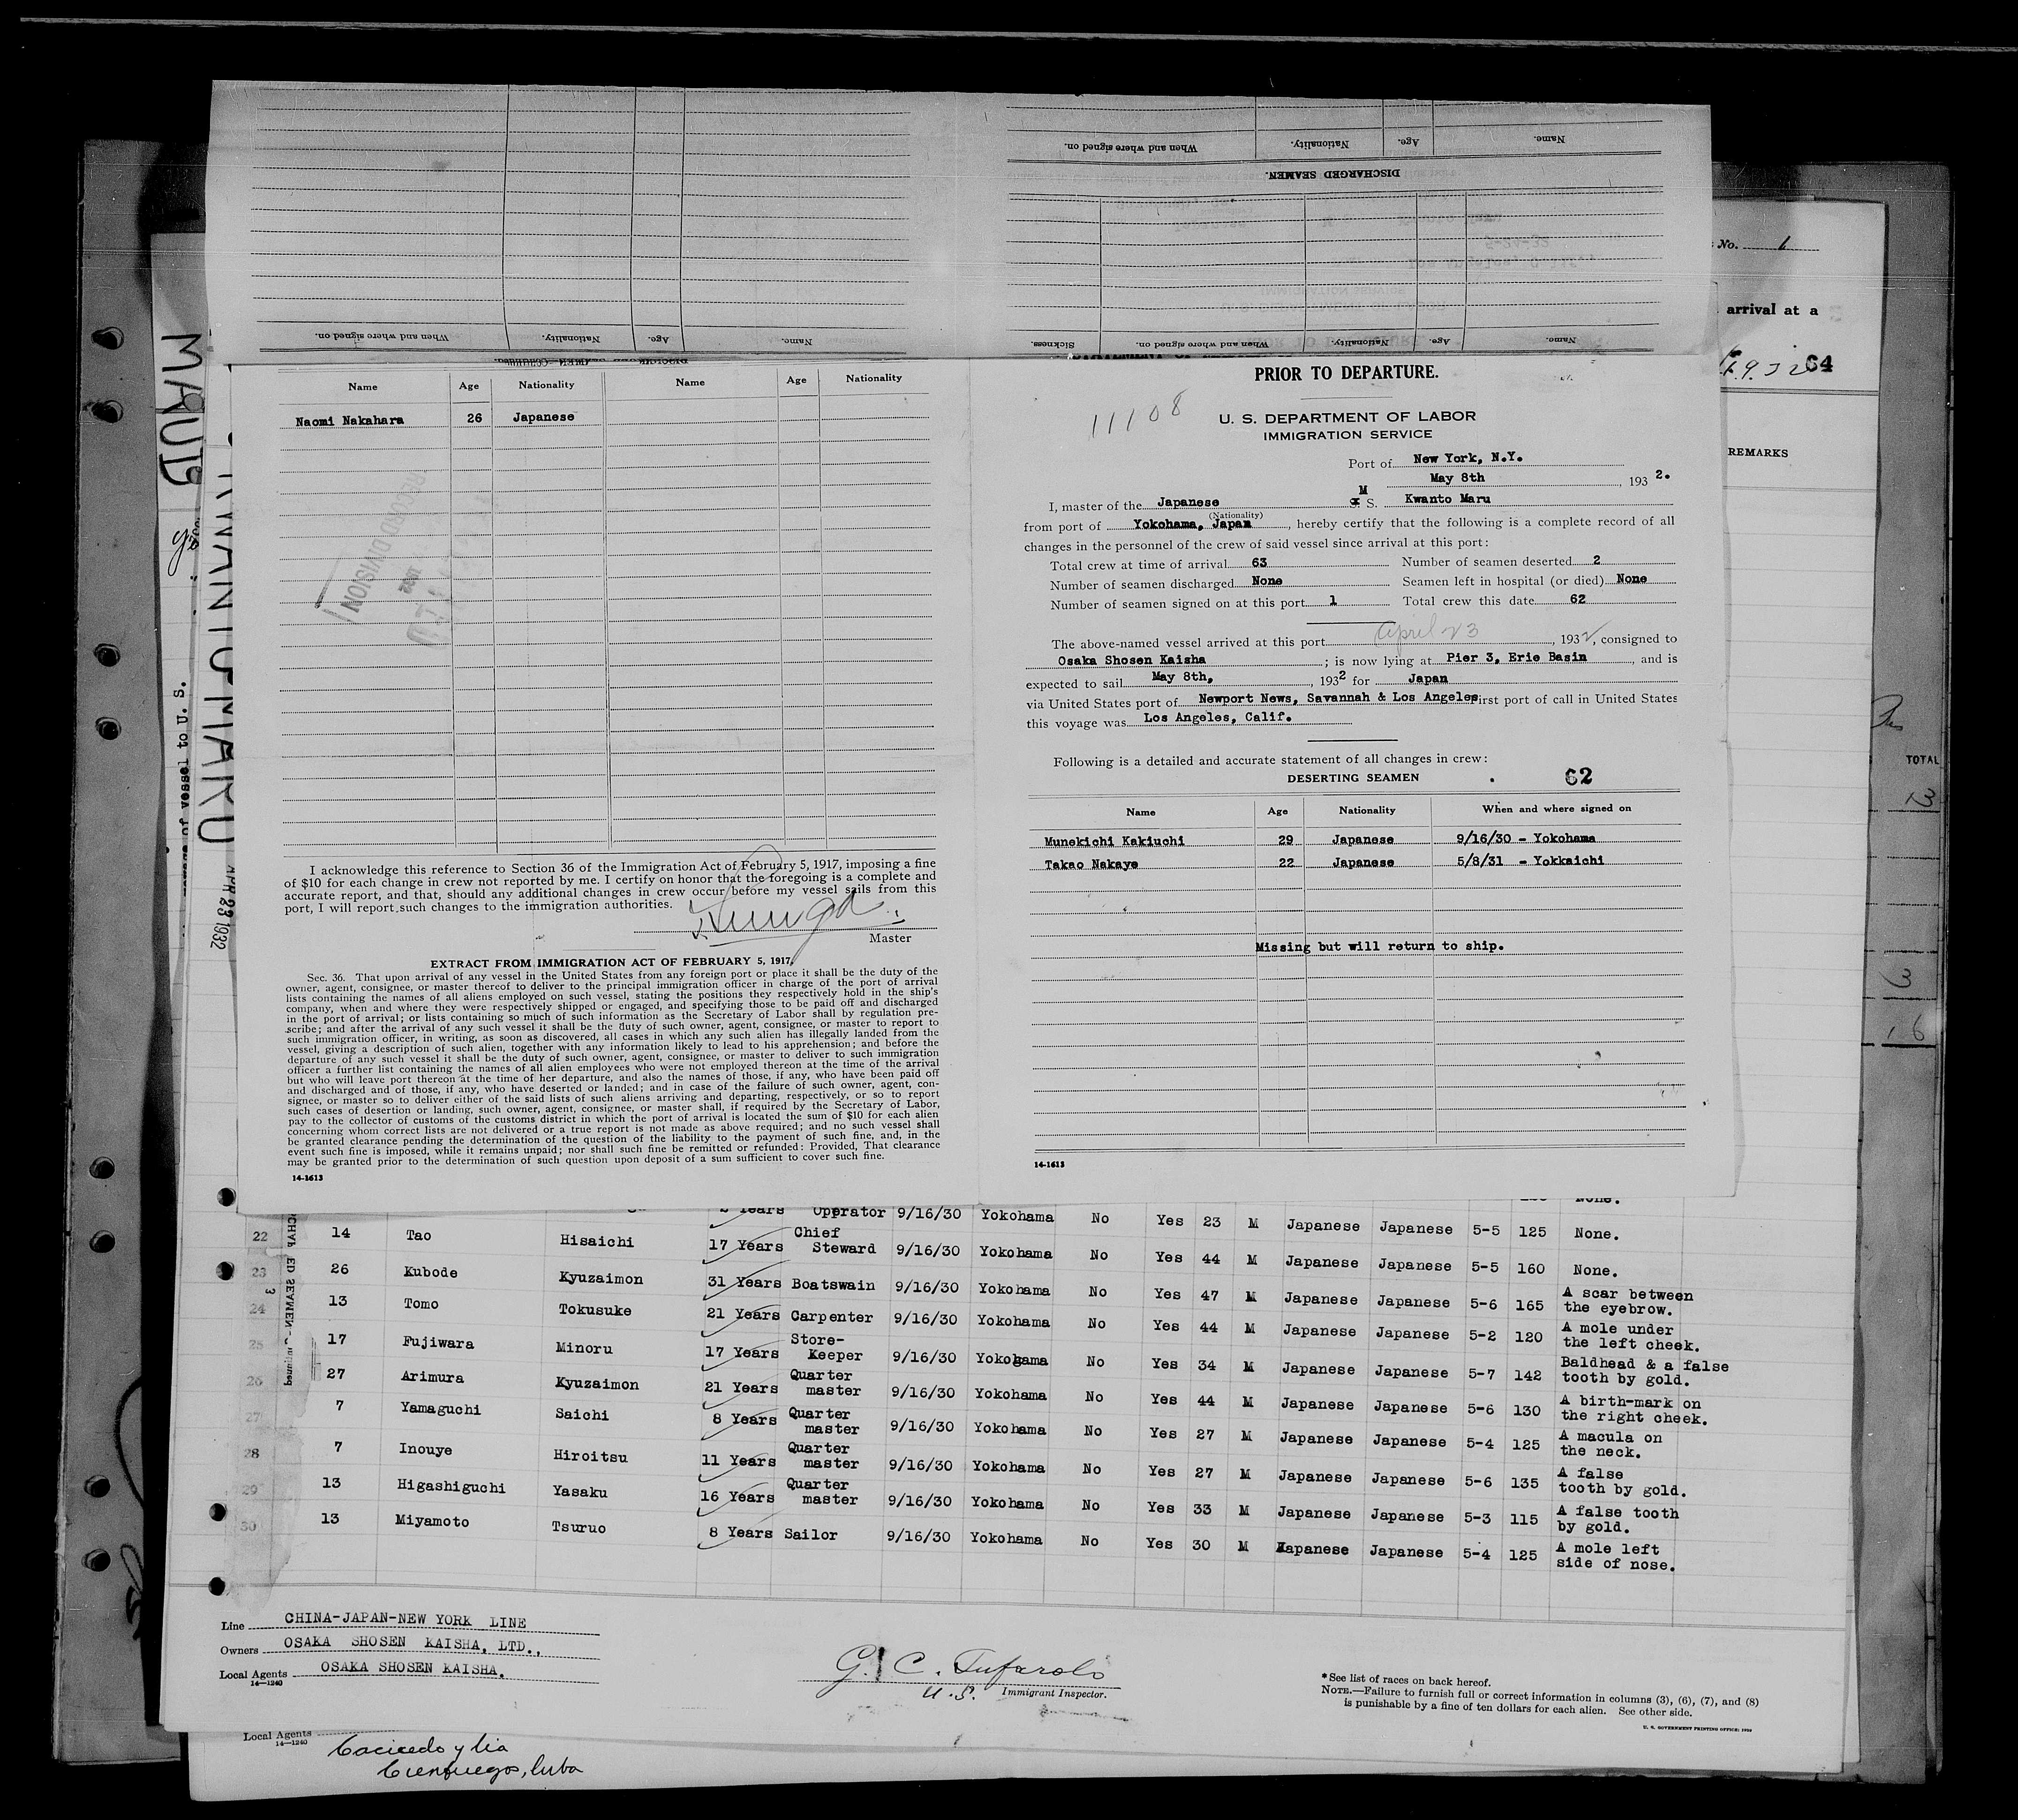 When and where signed on.
Nationality.
Age.
Name.
DISCHARGED SEAMEN.
When and where signed on.
Nationality.
Age.
Name.
Sickness.
When and where signed on.
Nationality.
Age.
Name.
No. 1
arrival at a
64
REMARKS
MAUD
APR 23 1932
of vessel to U. S.
Name Age Nationality Name Age Nationality
Naomi Nakahara 26 Japanese
RECORD DIVISION
I acknowledge this reference to Section 36 of the Immigration Act of February 5, 1917, imposing a fine
of $10 for each change in crew not reported by me. I certify on honor that the foregoing is a complete and
accurate report, and that, should any additional changes in crew occur before my vessel sails from this
port, I will report such changes to the immigration authorities.
Master
EXTRACT FROM IMMIGRATION ACT OF FEBRUARY 5, 1917.
Sec. 36. That upon arrival of any vessel in the United States from any foreign port or place it shall be the duty of the
owner, agent, consignee, or master thereof to deliver to the principal immigration officer in charge of the port of arrival
lists containing the names of all aliens employed on such vessel, stating the positions they respectively hold in the ship's
company, when and where they were respectively shipped or engaged, and specifying those to be paid off and discharged
in the port of arrival; or lists containing so much of such information as the Secretary of Labor shall by regulation pre-
scribe; and after the arrival of any such vessel it shall be the duty of such owner, agent, consignee, or master to report to
such immigration officer, in writing, as soon as discovered, all cases in which any such alien has illegally landed from the
vessel, giving a description of such alien, together with any information likely to lead to his apprehension; and before the
departure of any such vessel it shall be the duty of such owner, agent, consignee, or master to deliver to such immigration
officer a further list containing the names of all alien employees who were not employed thereon at the time of the arrival
but who will leave port thereon at the time of her departure, and also the names of those, if any, who have been paid off
and discharged and of those, if any, who have deserted or landed; and in case of the failure of such owner, agent, con-
signee, or master so to deliver either of the said lists of such aliens arriving and departing, respectively, or so to report
such cases of desertion or landing, such owner, agent, consignee, or master shall, if required by the Secretary of Labor,
pay to the collector of customs of the customs district in which the port of arrival is located the sum of $10 for each alien
concerning whom correct lists are not delivered or a true report is not made as above required; and no such vessel shall
be granted clearance pending the determination of the question of the liability to the payment of such fine, and, in the
event such fine is imposed, while it remains unpaid; nor shall such fine be remitted or refunded: Provided, That clearance
may be granted prior to the determination of such question upon deposit of a sum sufficient to cover such fine.
14-1613
PRIOR TO DEPARTURE.
11108
U. S. DEPARTMENT OF LABOR
IMMIGRATION SERVICE
Port of New York, N.Y.
May 8th, 1932.
I, master of the Japanese M S. Kwanto Maru
(Nationality)
from port of Yokohama, Japan, hereby certify that the following is a complete record of all
changes in the personnel of the crew of said vessel since arrival at this port:
Total crew at time of arrival 63 Number of seamen deserted 2
Number of seamen discharged None Seamen left in hospital (or died) None
Number of seamen signed on at this port 1 Total crew this date 62
The above-named vessel arrived at this port April 23, 1932, consigned to
Osaka Shosen Kaisha; is now lying at Pier 3, Erie Basin, and is
expected to sail May 8th, , 1932 for Japan
via United States port of Newport News, Savannah & Los Angeles. First port of call in United States
this voyage was Los Angeles, Calif.
Following is a detailed and accurate statement of all changes in crew:
DESERTING SEAMEN 62
Name Age Nationality When and where signed on
Munekichi Kakiuchi 29 Japanese 9/16/30 - Yokohama
Takao Nakaye 22 Japanese 5/8/31 - Yokkaichi
Missing but will return to ship.
14-1613
TOTAL
13
3
16
None.
2 Years Operator 9/16/30 Yokohama No Yes 23 M Japanese Japanese 5-5 125 None.
22 14 Tao Hisaichi 17 Years Chief Steward 9/16/30 Yokohama No Yes 44 M Japanese Japanese 5-5 160 None.
23 26 Kubode Kyuzaimon 31 Years Boatswain 9/16/30 Yokohama No Yes 47 M Japanese Japanese 5-6 165 A scar between the eyebrow.
24 13 Tomo Tokusuke 21 Years Carpenter 9/16/30 Yokohama No Yes 44 M Japanese Japanese 5-2 120 A mole under the left cheek.
25 17 Fujiwara Minoru 17 Years Store-Keeper 9/16/30 Yokogama No Yes 34 M Japanese Japanese 5-7 142 Baldhead & a false tooth by gold.
26 27 Arimura Kyuzaimon 21 Years Quarter master 9/16/30 Yokohama No Yes 44 M Japanese Japanese 5-6 130 A birth-mark on the right cheek.
27 7 Yamaguchi Saichi 8 Years Quarter master 9/16/30 Yokohama No Yes 27 M Japanese Japanese 5-4 125 A macula on the neck.
28 7 Inouye Hiroitsu 11 Years Quarter master 9/16/30 Yokohama No Yes 27 M Japanese Japanese 5-6 135 A false tooth by gold.
29 13 Higashiguchi Yasaku 16 Years Quarter master 9/16/30 Yokohama No Yes 33 M Japanese Japanese 5-3 115 A false tooth by gold.
30 13 Miyamoto Tsuruo 8 Years Sailor 9/16/30 Yokohama No Yes 30 M Japanese Japanese 5-4 125 A mole left side of nose.
Line CHINA-JAPAN-NEW YORK LINE
Owners OSAKA SHOSEN KAISHA, LTD.,
Local Agents OSAKA SHOSEN KAISHA.
14-1240
G. C. Tufarolo
U. S. Immigrant Inspector.
*See list of races on back hereof.
NOTE.—Failure to furnish full or correct information in columns (3), (6), (7), and (8)
is punishable by a fine of ten dollars for each alien. See other side.
U. S. GOVERNMENT PRINTING OFFICE: 1930
Local Agents
14-1240
Cacicedo y Cia
Cienfuegos, Cuba